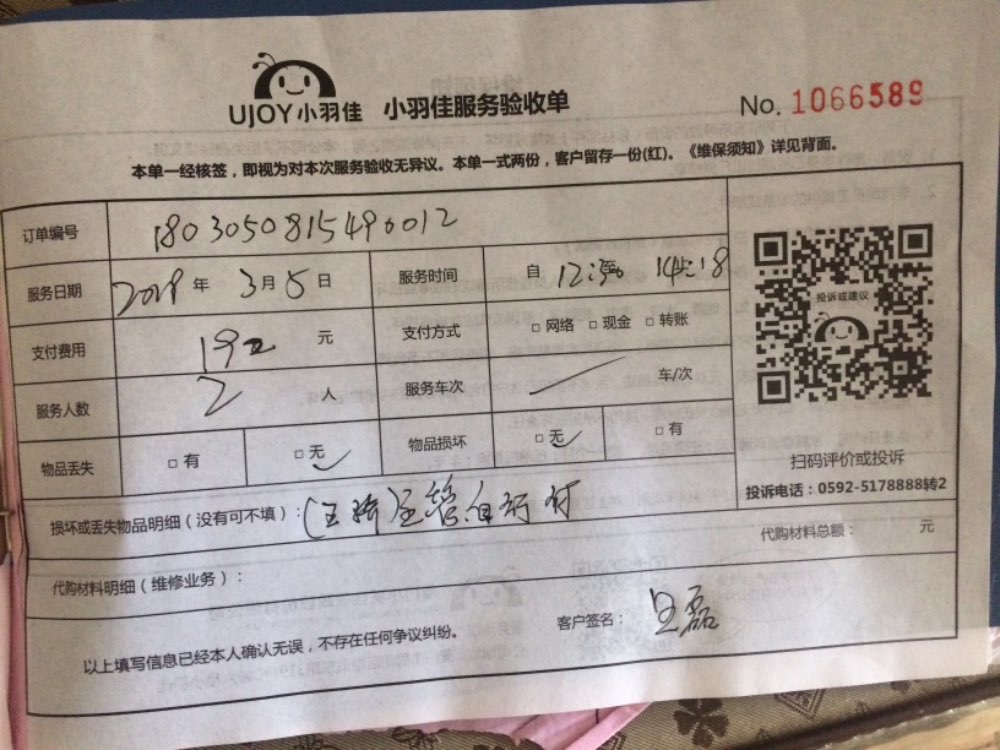 UJOY小羽佳 小羽佳服务验收单 No. 1066589
本单一经核签，即视为对本次服务验收无异议。本单一式两份，客户留存一份(红)。《维保须知》详见背面。
订单编号 1803050815490012
服务日期 2018年 3月5日 服务时间 自 12:30 至 14:18
支付费用 192 元 支付方式 □网络 □现金 □转账
投诉或建议
服务人数 2 人 服务车次 车/次
物品丢失 □有 □无 ✓ 物品损坏 □无 ✓ □有
扫码评价或投诉
投诉电话：0592-5178888转2
损坏或丢失物品明细（没有可不填）： 主管自行
代购材料总额： 元
代购材料明细（维修业务）：
以上填写信息已经本人确认无误，不存在任何争议纠纷。 客户签名： 磊